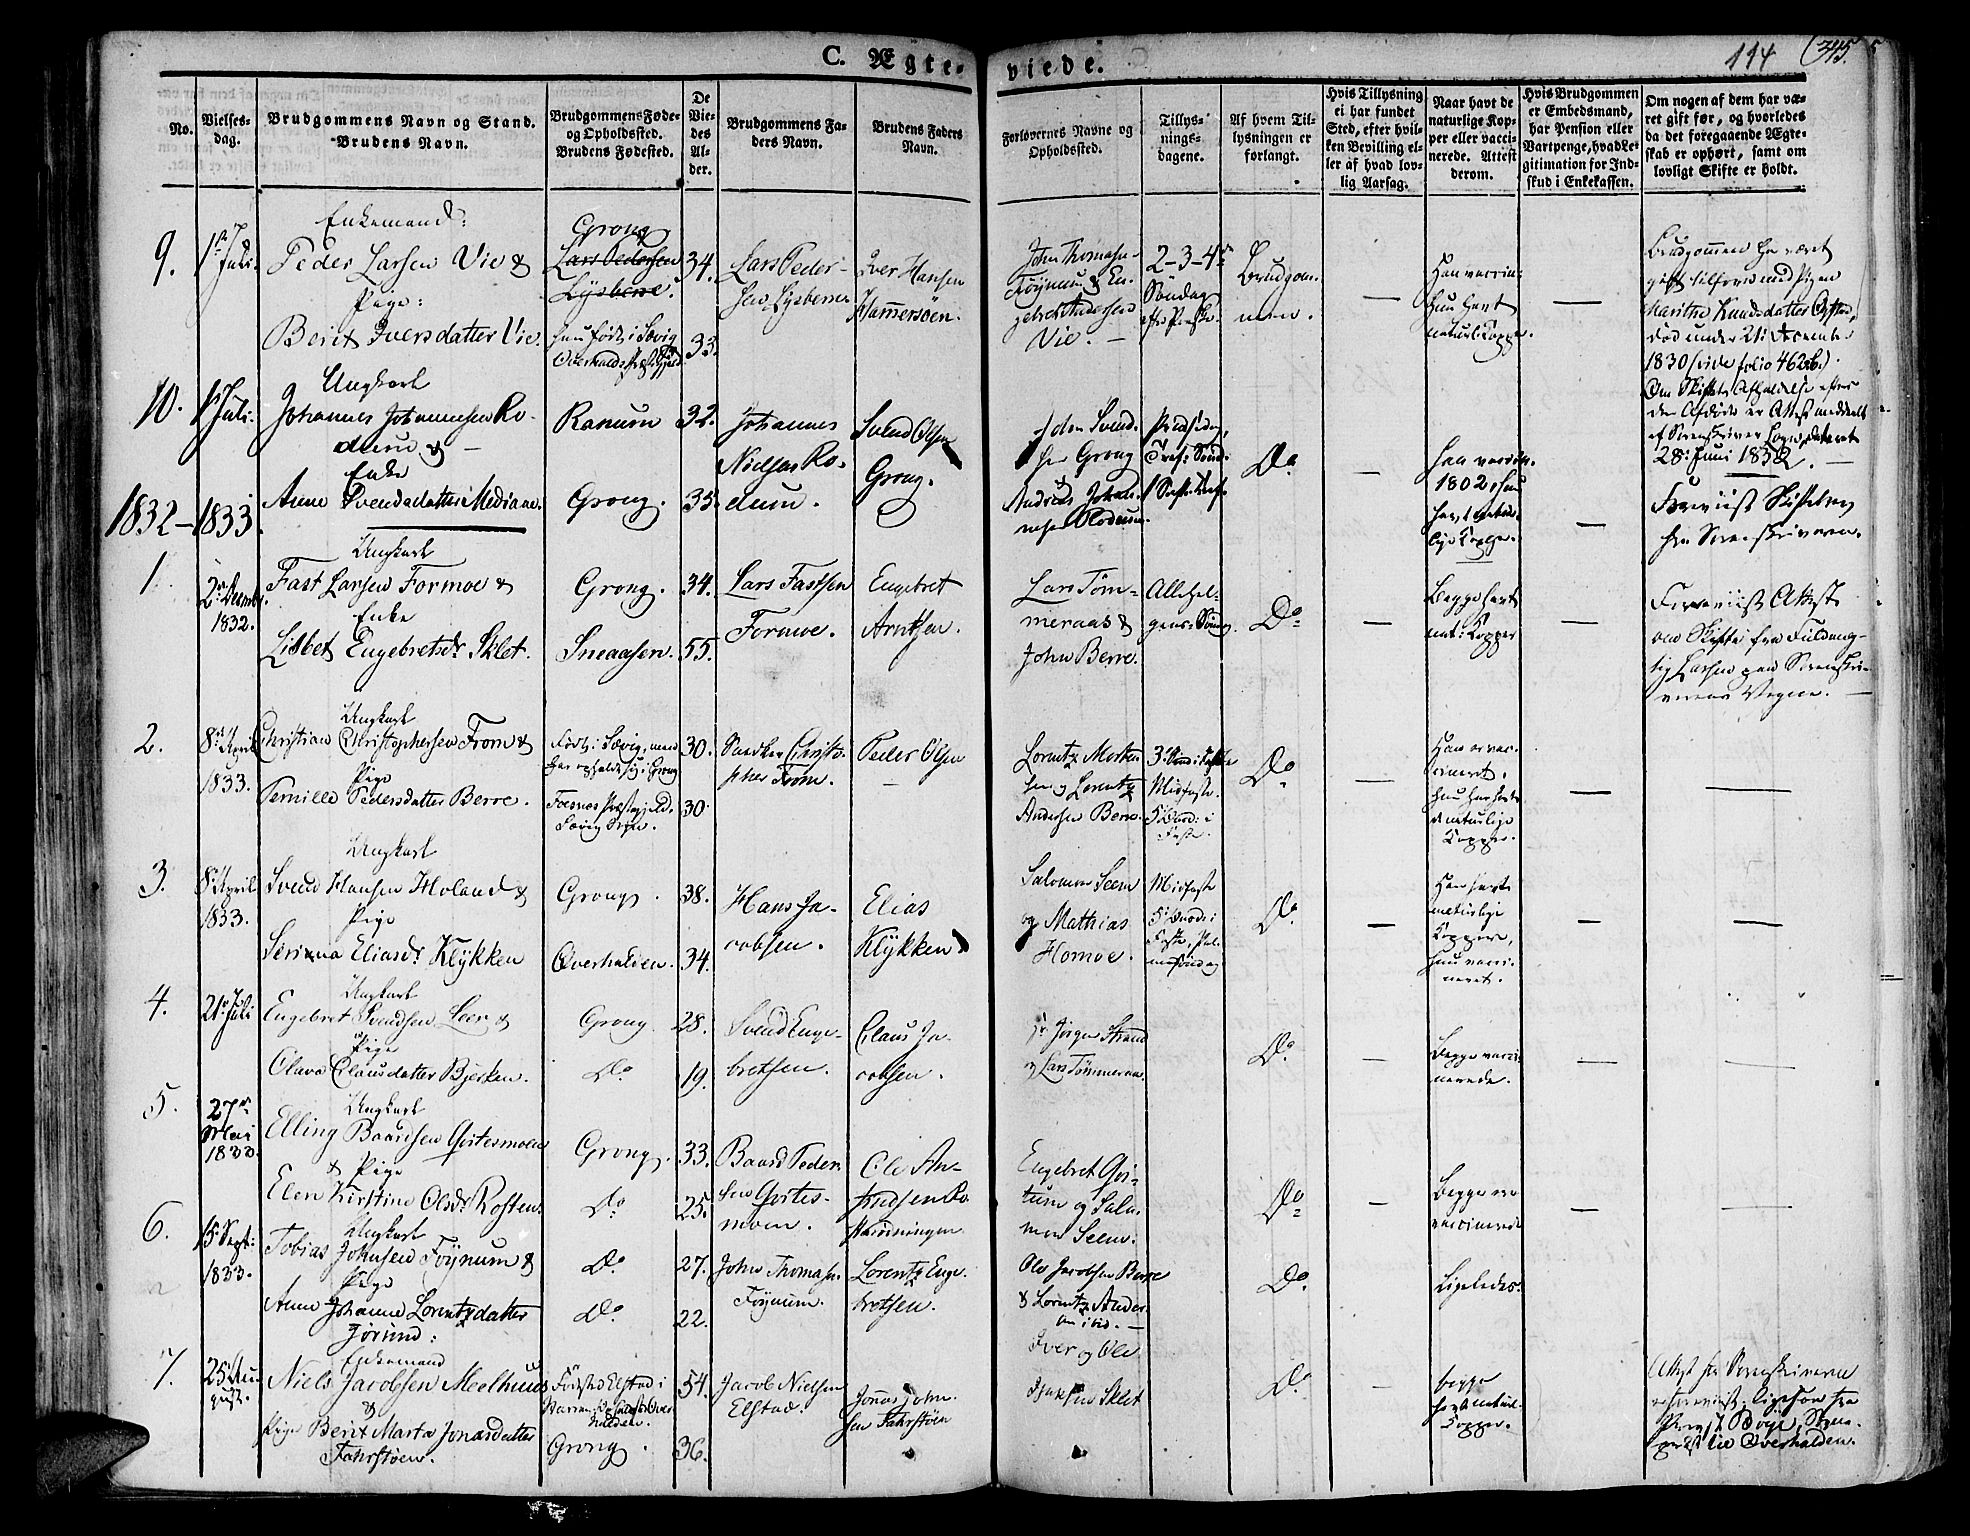 C. Ægteviede.
114
345.
No.
Vielsesdag.
Brudgommens Navn og Stand.
Brudens Navn.
Brudgommens Føde- og Opholdssted.
Brudens Fødested.
De Viedes Alder.
Brudgommens Faders Navn.
Brudens Faders Navn.
Forlovernes Navne og Opholdssted.
Tillysningsdagene.
Af hvem Tillysningen er forlangt.
Hvis Tillysning ei har fundet Sted, efter hvilken Bevilling eller af hvad lovlig Aarsag.
Naar havt de naturlige Kopper eller vaccinerede. Attest derom.
Hvis Brudgommen er Embedsmand, har Pension eller Vartpenge, hvad Legitimation for Indskud i Enkekassen.
Om nogen af dem har været gift før, og hvorledes da det foregaaende Ægteskab er ophørt, samt om lovligt Skifte er holdt.
9.
1st Juli.
Enkemand:
Peder Larsen Vie &
Pige:
Berit Iversdatter Vie.
Grong
Lars Pedersen
Lysberre.
hun født i Sævig
34.
33.
Lars Peder-
sen Lysberre
Iver Hansen
Hammersöen.
John Thomasen
Föynum &
Vie.
2-3-4de
Søndag
Brudgommen.
Han vaccin:
Hun havt
naturl: Kopper
Brudgommen har været
gift tilforn med Pigen
Marithe Knudsdatter
1830 (vide folio 462b.)
28de Juni 1832.
10.
1 Juli.
Ungkarl
Johannes Johannesen Ro-
dum &
Enke
Anne Svendsdatter Mediaae.
Ranum
Grong.
32.
35.
Johannes
Nielsen Ro-
dum.
Svend Olsen
Grong.
Grong
Andreas Johan-
nesen Rodum.
Do
Han vaccin.
1802, hun
havt natur-
lige Kopper.
Foreviist Skiftebrev
fra Sorenskriveren.
1832-1833.
1.
2de Decemb.
1832.
Ungkarl
Fast Larsen Formoe &
Enke
Lisbet Engebretsdr Sklet.
Grong.
Sneaasen.
34.
55.
Lars Fastsen
Formoe.
Engebret
Arntsen.
Lars Töm-
meraas &
John Berre.
Allehel-
gens Söndag.
Do
Begge havt
nat: Kopper
Foreviist Attest
om Skifte fra
Larsen paa Sorenskri-
verens Vegne.
2.
8de April
1833.
Ungkarl
Christian Christophersen From &
Pige
Pernille Pedersdatter Berre.
Født i Sævig, men
Fosnes Præstegjeld,
Sævig Sogn.
30.
30.
Christo-
pher From.
Peder Olsen
Lorentz Morten-
sen og Lorentz
Andersen Berre.
Midfaste
Do
Han er vac-
cineret,
Hun har havt
naturlige
Kopper.
3.
8de April
1833.
Ungkarl
Svend Hansen Holand &
Pige
Serina Eliasdr Klykken
Grong.
Overhalden.
38.
34.
Hans Ja-
cobsen.
Elias
Klykken
Salomon Seem
og Mathias
Homoe.
Midfaste
Do
Han havt
naturlige
Koppere,
hun vacci-
neret.
4.
21de Juli
Ungkarl
Engebret Svendsen Leer &
Pige
Olava Clausdatter Bjerken.
Grong.
Do
28.
19.
Svend Enge-
bretsen.
Claus Ja-
cobsen.
Jörgen Strand
og Lars Tömmeraas.
Do
Begge vacci-
nerede.
5.
27de
Mai
1833.
Ungkarl
Elling Baardsen Gortesmoen
& Pige
Elen Kirstine Olsdr Rosten.
Grong.
Do
33.
25.
Baard Peder-
sen Gortes-
moen.
Ole
Engebret Gar-
tum og Salo-
mon Seem.
Do
Begge
vaccinerede
6.
15de Sept:
1833.
Ungkarl
Tobias Johnsen Föynum &
Pige
Anne Johanne Lorentzdatter
Jörund:
Do
Do
27.
22.
John Thomasen
Föynum.
Lorentz Enge-
bretsen.
Ole Jacobsen Berre
& Lorentz Ander-
Do
Ligeledes.
7.
25de Au-
gust.
Enkemand
Niels Jacobsen Meelhuus
&
Pige Berit Marta Jonasdatter
Fahrstöen.
Födested Elstad i
Grong.
54.
36.
Jacob Nielsen
Elstad.
Jonas John-
sen Fahrstöen
Iver og Ole
Sklet
Do
begge
havt naturl.
Kopper.
Attest fra Sorenskriveren
Overhalden.